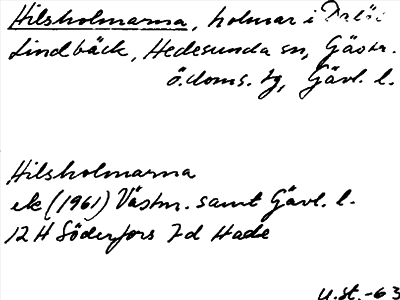 Hilsholmarna, holmar i
Lindbäck, Hedesunda sn, Gästr.
ö. doms. tg, Gävl. l.
Hilsholmarna
ek (1961) Västm. samt Gävl. l.
12 H Söderfors 7d Hade
U.st.-63